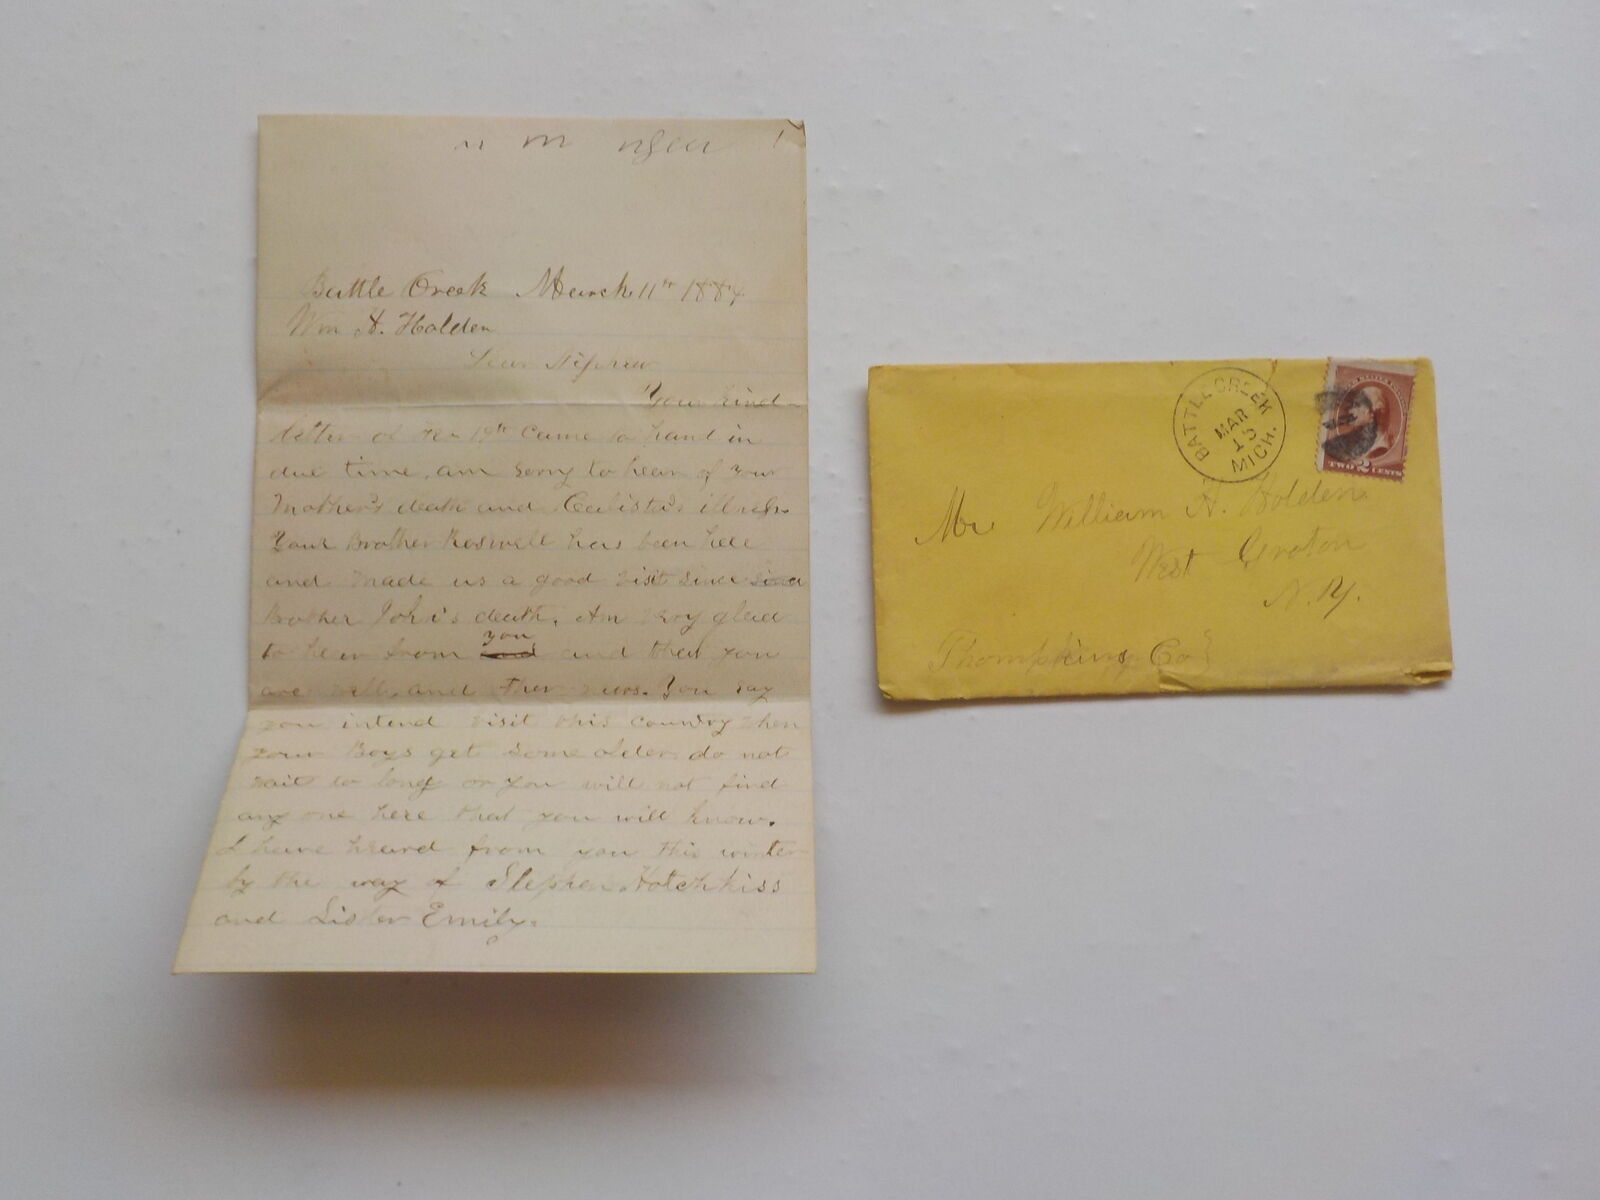 Battle Creek March 11th 1884
Wm H. Holden
Dear Nephew
Your kind
letter of Feb 19th came to hand in
due time, am sorry to hear of your
Mother's death and Calista's illness.
Your Brother Roswell has been here
and made us a good visit since
Brother John's death, Am very glad
to hear from you and that you
are well, and other news. You say
you intend visit this country when
your Boys get some older do not
wait to long or you will not find
any one here that you will know.
I have heard from you this winter
by the way of Stephen Hotchkiss
and Sister Emily.
BATTLE CREEK
MAR
13
MICH.
TWO 2 CENTS
Mr William H. Holden
West Groton
N.Y.
Thompkins Co